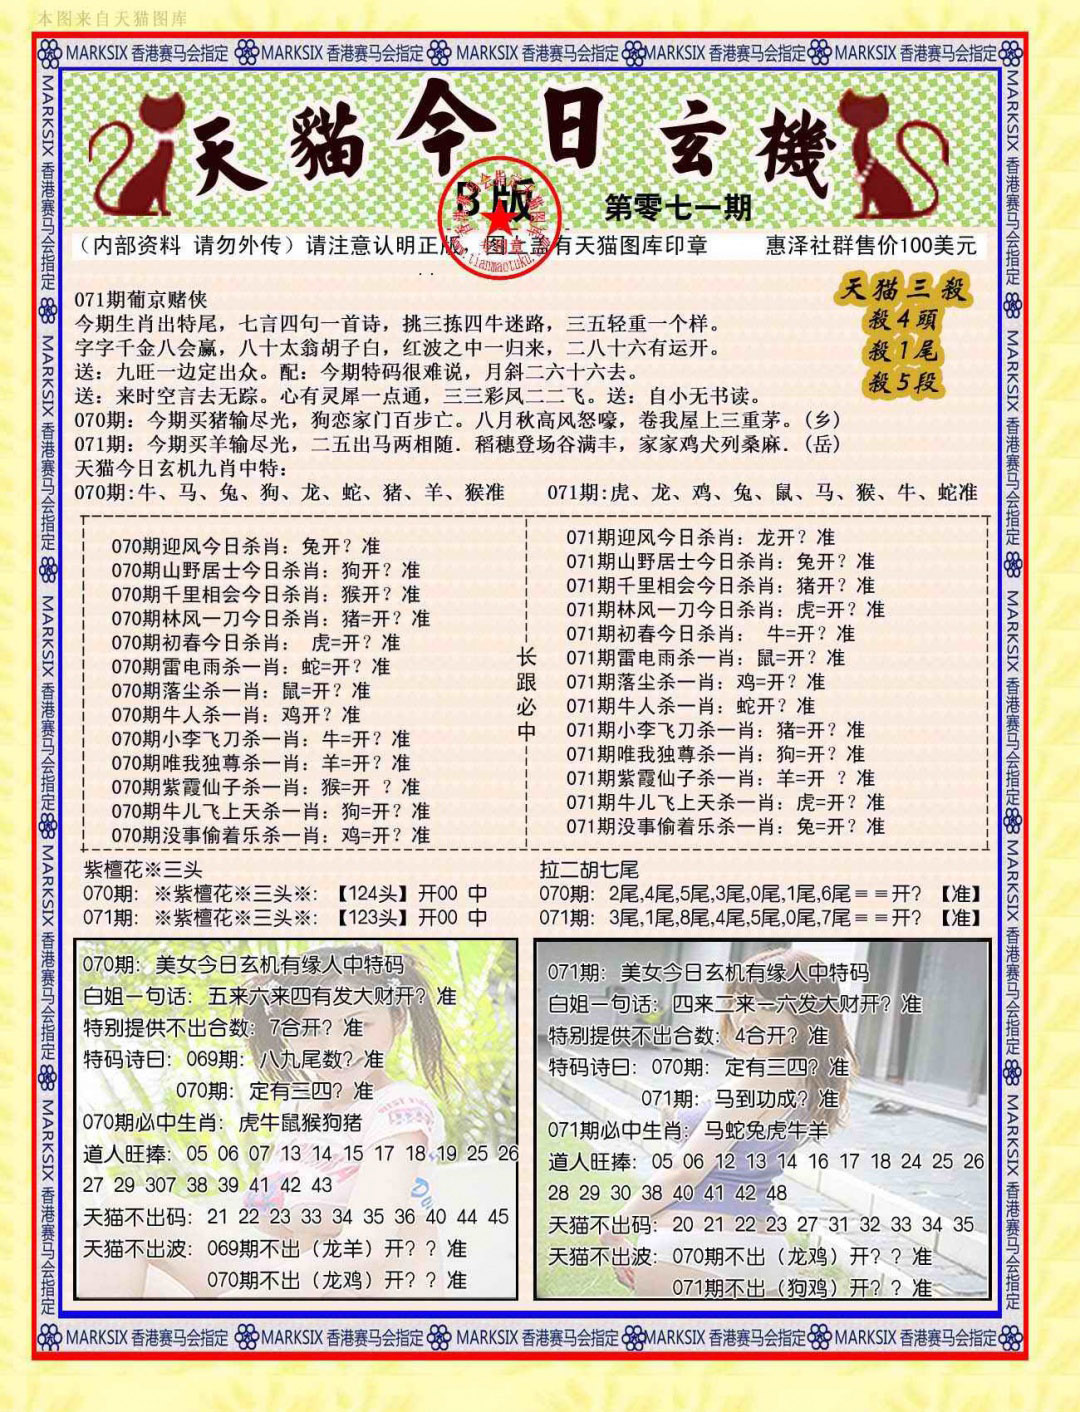 本图来自天猫图库
MARKSIX 香港赛马会指定 MARKSIX 香港赛马会指定 MARKSIX 香港赛马会指定 MARKSIX 香港赛马会指定 MARKSIX 香港赛马会指定
天貓今日玄機
B版
第零七一期
（内部资料 请勿外传）请注意认明正版，图上盖有天猫图库印章
惠泽社群售价100美元
天猫三殺
殺4頭
殺1尾
殺5段
071期葡京赌侠
今期生肖出特尾，七言四句一首诗，挑三拣四牛迷路，三五轻重一个样。
字字千金八会赢，八十太翁胡子白，红波之中一归来，二八十六有运开。
送：九旺一边定出众。配：今期特码很难说，月斜二六十六去。
送：来时空言去无踪。心有灵犀一点通，三三彩凤二二飞。送：自小无书读。
070期：今期买猪输尽光，狗恋家门百步亡。八月秋高风怒嚎，卷我屋上三重茅。(乡)
071期：今期买羊输尽光，二五出马两相随．稻穗登场谷满丰，家家鸡犬列桑麻．(岳)
天猫今日玄机九肖中特：
070期:牛、马、兔、狗、龙、蛇、猪、羊、猴准
071期:虎、龙、鸡、兔、鼠、马、猴、牛、蛇准
070期迎风今日杀肖：兔开？准
070期山野居士今日杀肖：狗开？准
070期千里相会今日杀肖：猴开？准
070期林风一刀今日杀肖：猪=开？准
070期初春今日杀肖： 虎=开？准
070期雷电雨杀一肖：蛇=开？准
070期落尘杀一肖：鼠=开？准
070期牛人杀一肖：鸡开？准
070期小李飞刀杀一肖：牛=开？准
070期唯我独尊杀一肖：羊=开？准
070期紫霞仙子杀一肖：猴=开 ？准
070期牛儿飞上天杀一肖：狗=开？准
070期没事偷着乐杀一肖：鸡=开？准
长跟必中
071期迎风今日杀肖：龙开？准
071期山野居士今日杀肖：兔开？准
071期千里相会今日杀肖：猪开？准
071期林风一刀今日杀肖：虎=开？准
071期初春今日杀肖： 牛=开？准
071期雷电雨杀一肖：鼠=开？准
071期落尘杀一肖：鸡=开？准
071期牛人杀一肖：蛇开？准
071期小李飞刀杀一肖：猪=开？准
071期唯我独尊杀一肖：狗=开？准
071期紫霞仙子杀一肖：羊=开 ？准
071期牛儿飞上天杀一肖：虎=开？准
071期没事偷着乐杀一肖：兔=开？准
紫檀花※三头
070期：※紫檀花※三头※：【124头】开00 中
071期：※紫檀花※三头※：【123头】开00 中
拉二胡七尾
070期：2尾,4尾,5尾,3尾,0尾,1尾,6尾＝＝开？【准】
071期：3尾,1尾,8尾,4尾,5尾,0尾,7尾＝＝开？【准】
070期：美女今日玄机有缘人中特码
白姐一句话：五来六来四有发大财开？准
特别提供不出合数：7合开？准
特码诗曰：069期：八九尾数？准
070期：定有三四？准
070期必中生肖：虎牛鼠猴狗猪
道人旺捧：05 06 07 13 14 15 17 18 19 25 26
27 29 307 38 39 41 42 43
天猫不出码：21 22 23 33 34 35 36 40 44 45
天猫不出波：069期不出（龙羊）开？？准
070期不出（龙鸡）开？？准
071期：美女今日玄机有缘人中特码
白姐一句话：四来二来一六发大财开？准
特别提供不出合数：4合开？准
特码诗曰：070期：定有三四？准
071期：马到功成？准
071期必中生肖：马蛇兔虎牛羊
道人旺捧：05 06 12 13 14 16 17 18 24 25 26
28 29 30 38 40 41 42 48
天猫不出码：20 21 22 23 27 31 32 33 34 35
天猫不出波：070期不出（龙鸡）开？？准
071期不出（狗鸡）开？？准
MARKSIX 香港赛马会指定 MARKSIX 香港赛马会指定 MARKSIX 香港赛马会指定 MARKSIX 香港赛马会指定 MARKSIX 香港赛马会指定